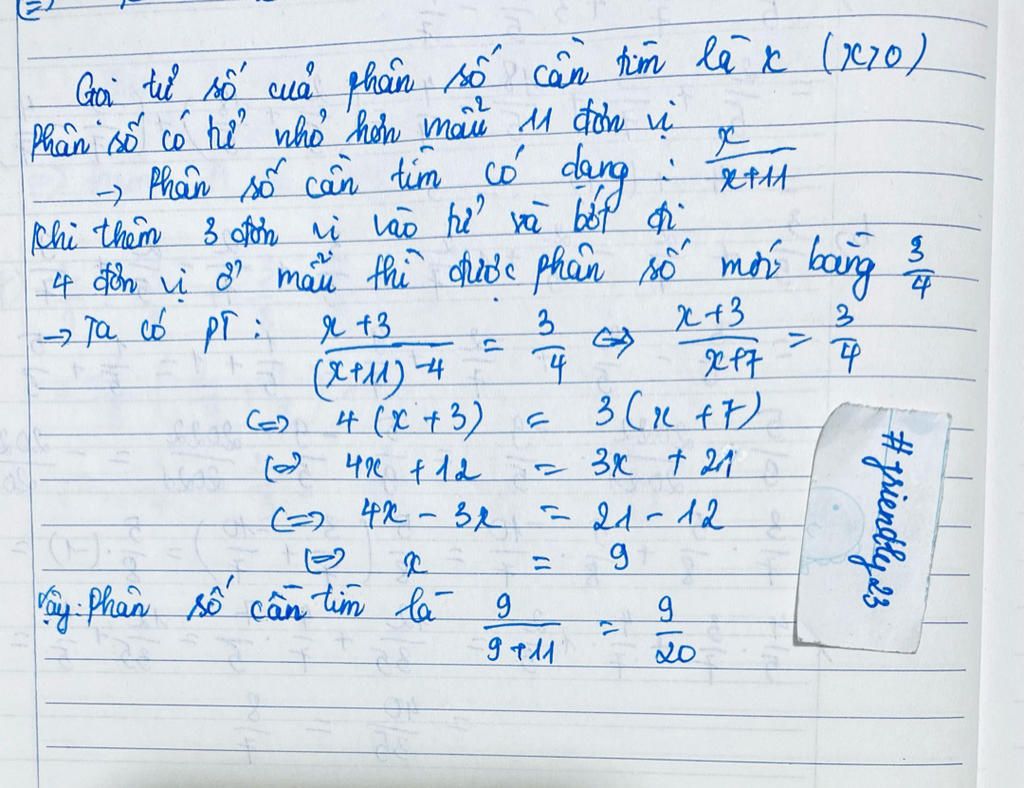 Gọi tử số của phân số cần tìm là x (x>0)
Phân số có tử nhỏ hơn mẫu 11 đơn vị
→ Phân số cần tìm có dạng : x/(x+11)
Khi thêm 3 đơn vị vào tử và bớt đi
4 đơn vị ở mẫu thì được phân số mới bằng 3/4
→ Ta có PT : (x+3)/((x+11)-4) = 3/4 ⇔ (x+3)/(x+7) = 3/4
⇔ 4(x+3) = 3(x+7)
⇔ 4x + 12 = 3x + 21
⇔ 4x - 3x = 21 - 12
⇔ x = 9
Vậy: Phân số cần tìm là 9/(9+11) = 9/20
#friendly23